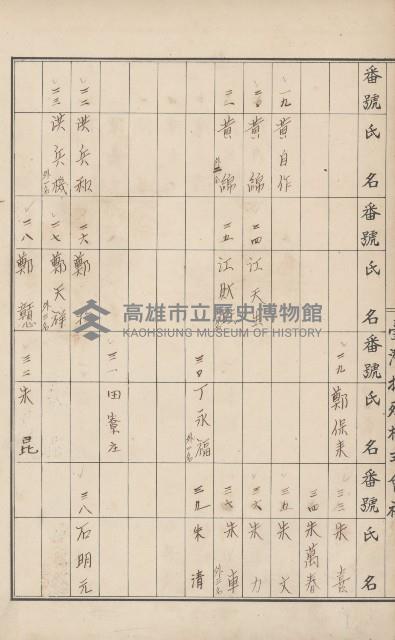 臺灣拓殖株式會社
番號 氏名
一九 黃自作
二〇 黃綿
二一 黃綿
二二 洪兵和
二三 洪兵機 外一名
番號 氏名
二四 江天
二五 江財
二六 鄭
二七 鄭天祥 外三名
二八 鄭戇
番號 氏名
二九 鄭保来
三〇 丁永福 外一名
三一 田寮庄
三二 朱昆
番號 氏名
三三 朱喜
三四 朱萬春
三五 朱文
三六 朱力
朱車 外三名
三九 朱清
三八 石明元
高雄市立歷史博物館
KAOHSIUNG MUSEUM OF HISTORY